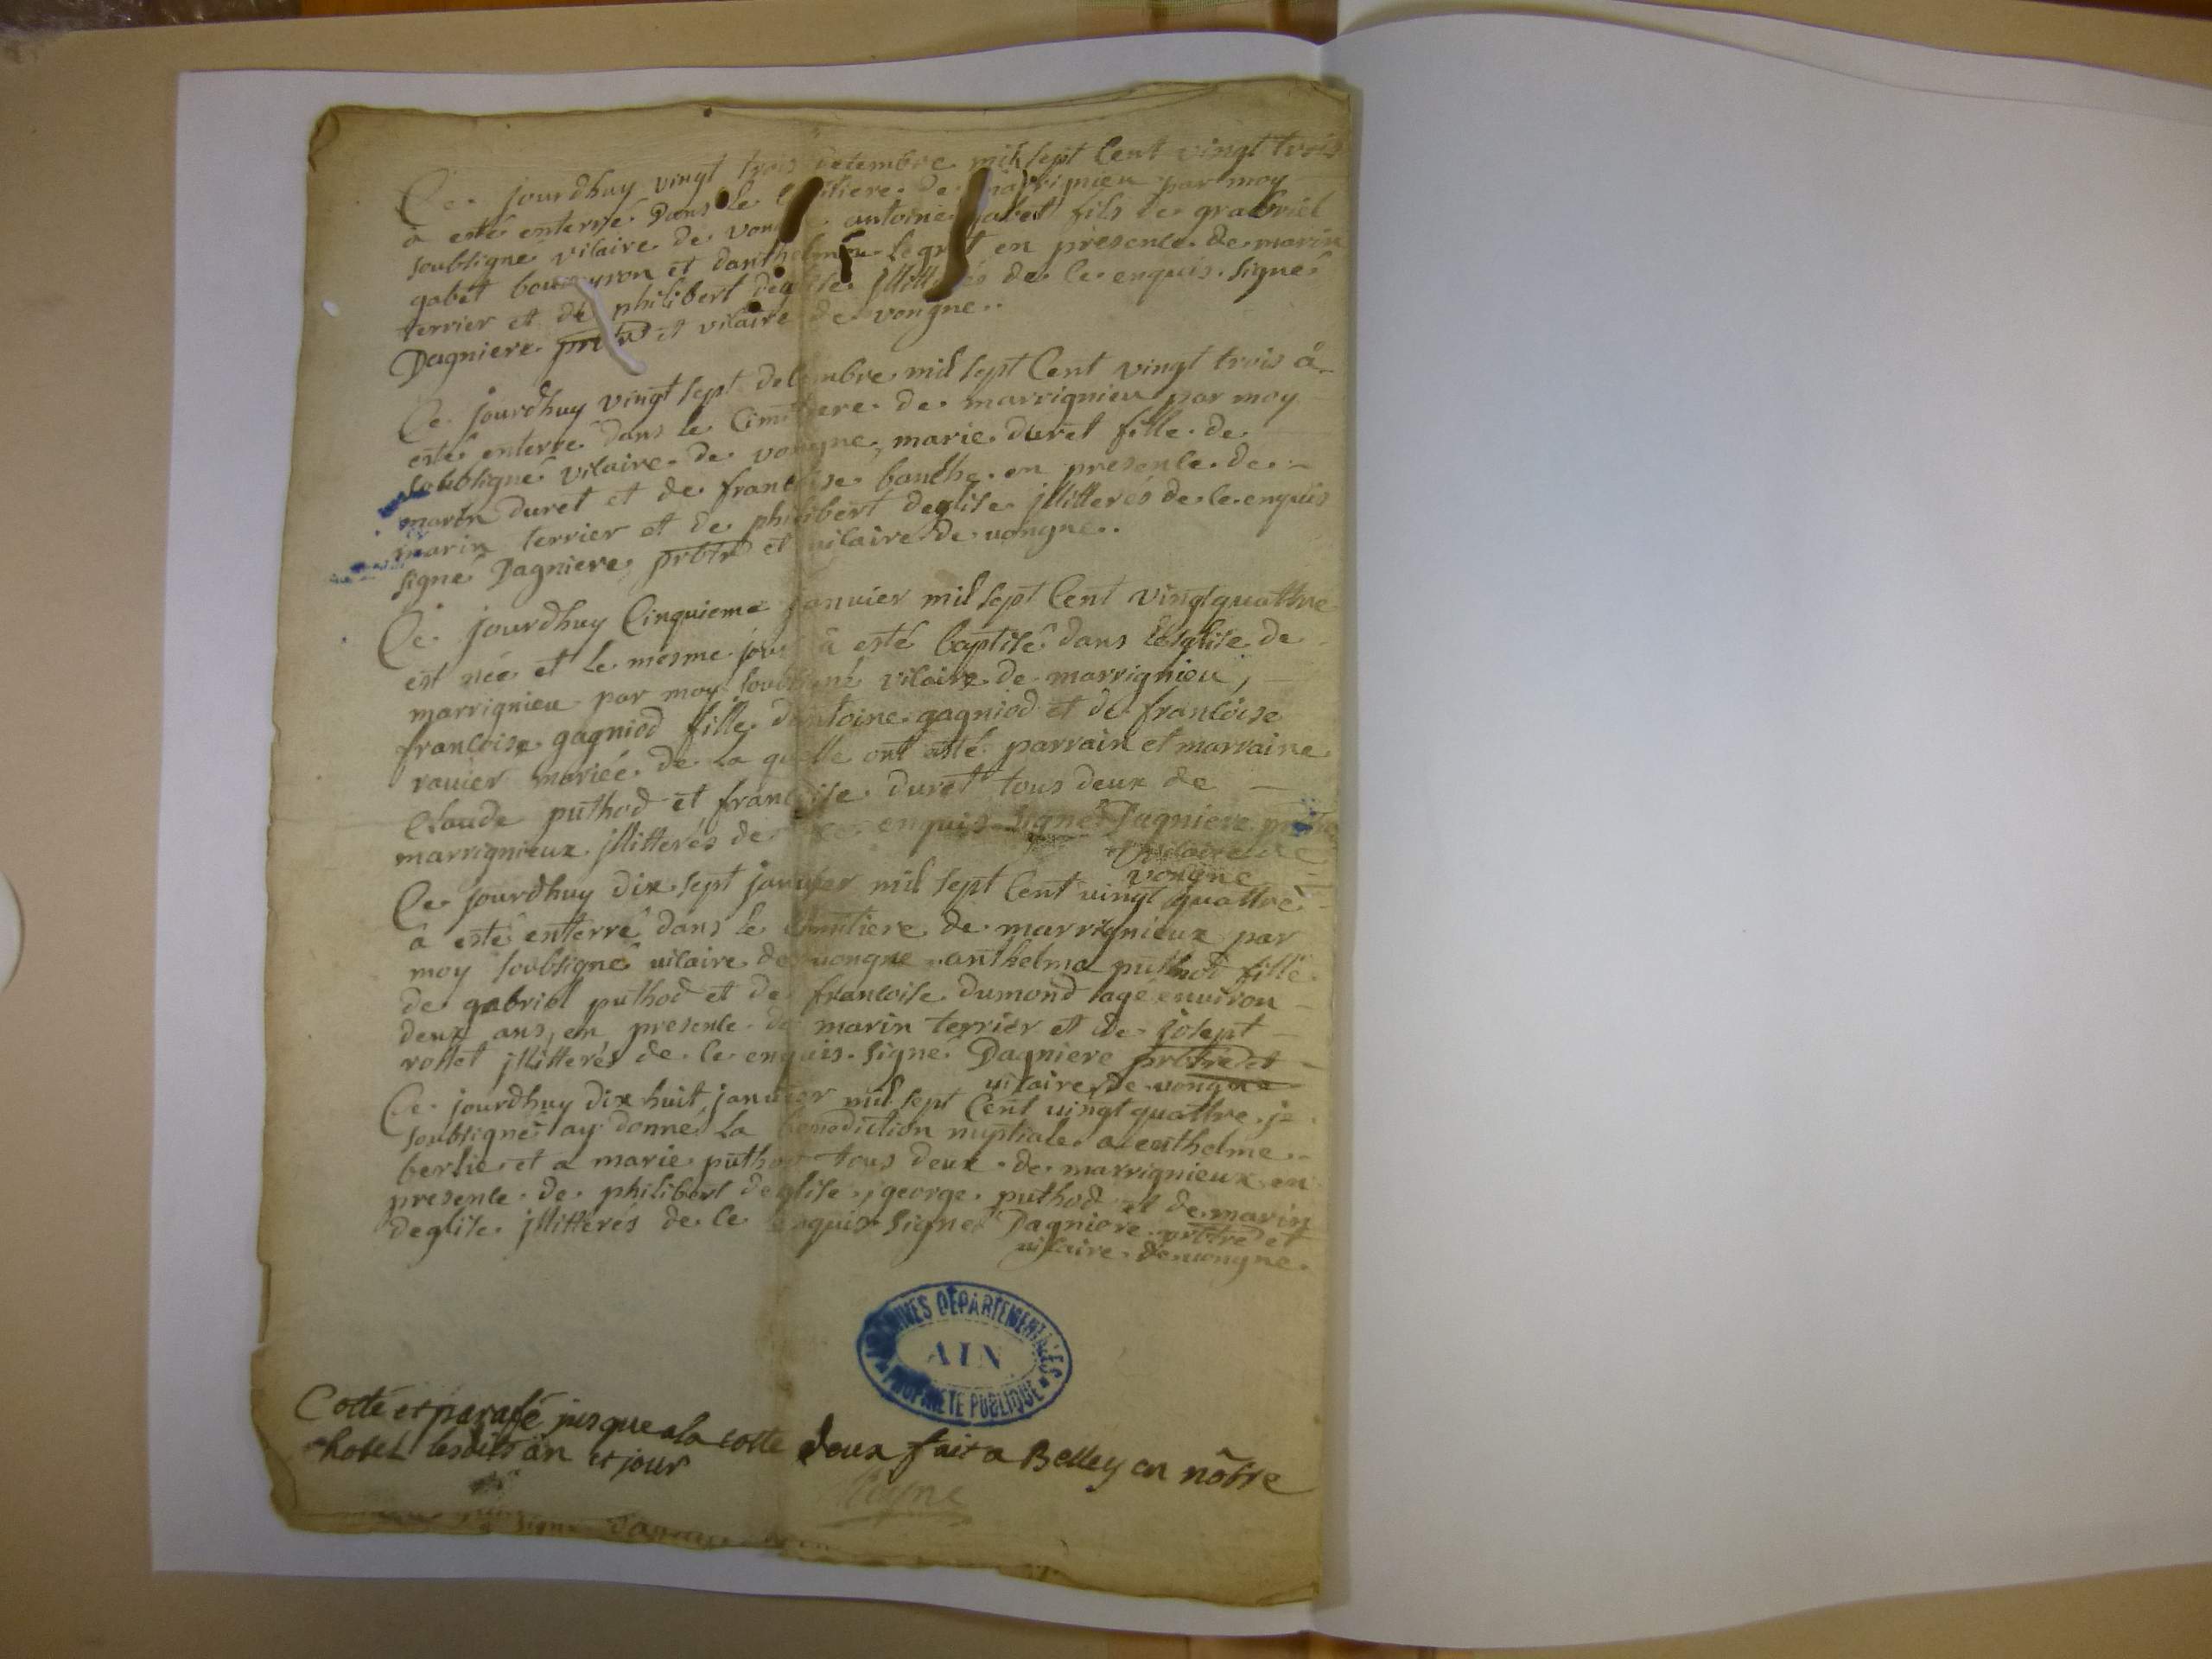 Ce jourdhuy vingt trois decembre mil sept Cent vingt trois
à esté enterré dans le de marrignieu par moy
soubsigné vicaire de antoine gabet fils de grabriel
gabet et en presence de marin
terrier et de philibert deglise de ce enquis signé
Dagniere et vicaire de vongne..
Ce jourdhuy vingt sept decembre mil sept Cent vingt trois à
esté enterré dans le Cimetiere de marrignieu par moy
soubsigné vicaire de vongne, marie duret fille de
martin duret et de francoise banche en presence de
marin terrier et de philibert deglise jllitterés de ce enquis
signé Dagniere prbtr et vicaire de vongne..
Ce jourdhuy Cinquieme janvier mil sept Cent vingt quattre
est née et le mesme jour à esté baptisé dans lésglise de
marrignieu par moy soubsigné vicaire de marrignieu,
francoise gagniod fille dantoine gagniod et de francoise
ravier mariée de la quelle ont esté parrain et marraine
Claude puthod et francoise duret tous deux de
marrignieux jllitterés de ce enquis signé Dagniere
vicaire de
vongne
Ce jourdhuy dix sept janvier mil sept Cent vingt quattre
à esté enterré dans le cimitiere de marrignieux par
moy soubsigné vicaire de vongne anthelma puthod fille
de gabriel puthod et de francoise dumond agé environ
deux ans, en presence de marin terrier et de josept
rottet jllitterés de ce enquis signé Dagniere prbtre et
vicaire de vongne
Ce jourdhuy dix huit janvier mil sept Cent vingt quattre je
soubsigné ay donné la benediction nuptiale a enthelme
berlie et a marie puthod tous deux de marrignieux en
presence de philibert deglise, george puthod et de marin
deglise jllitterés de ce enquis signé Dagniere prbtre et
vicaire de vongne.
ARCHIVES DÉPARTEMENTALES
AIN
PROPRIÉTÉ PUBLIQUE
Cotté et parafé jusque a la cotte deux fait a Belley en nôtre
hotel lesdits an et jour